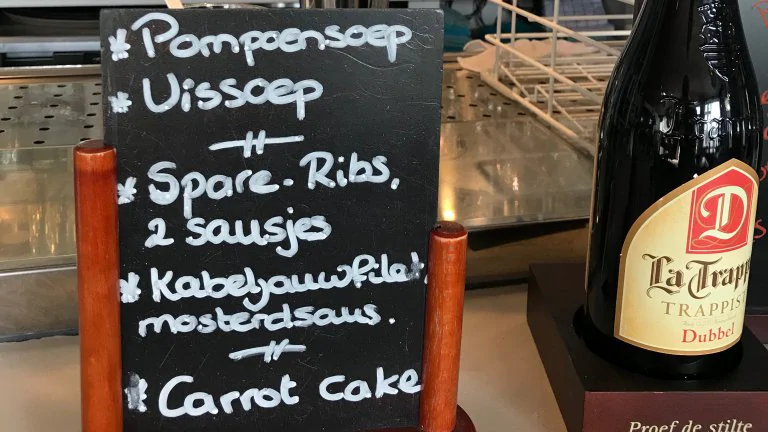 * Pompoensoep
* Uissoep
* Spare-Ribs,
2 sausjes
* Kabeljauwfilet,
mosterdsaus.
* Carrot cake
D
La Trapp
TRAPPIST
Dubbel
Proef de stilte